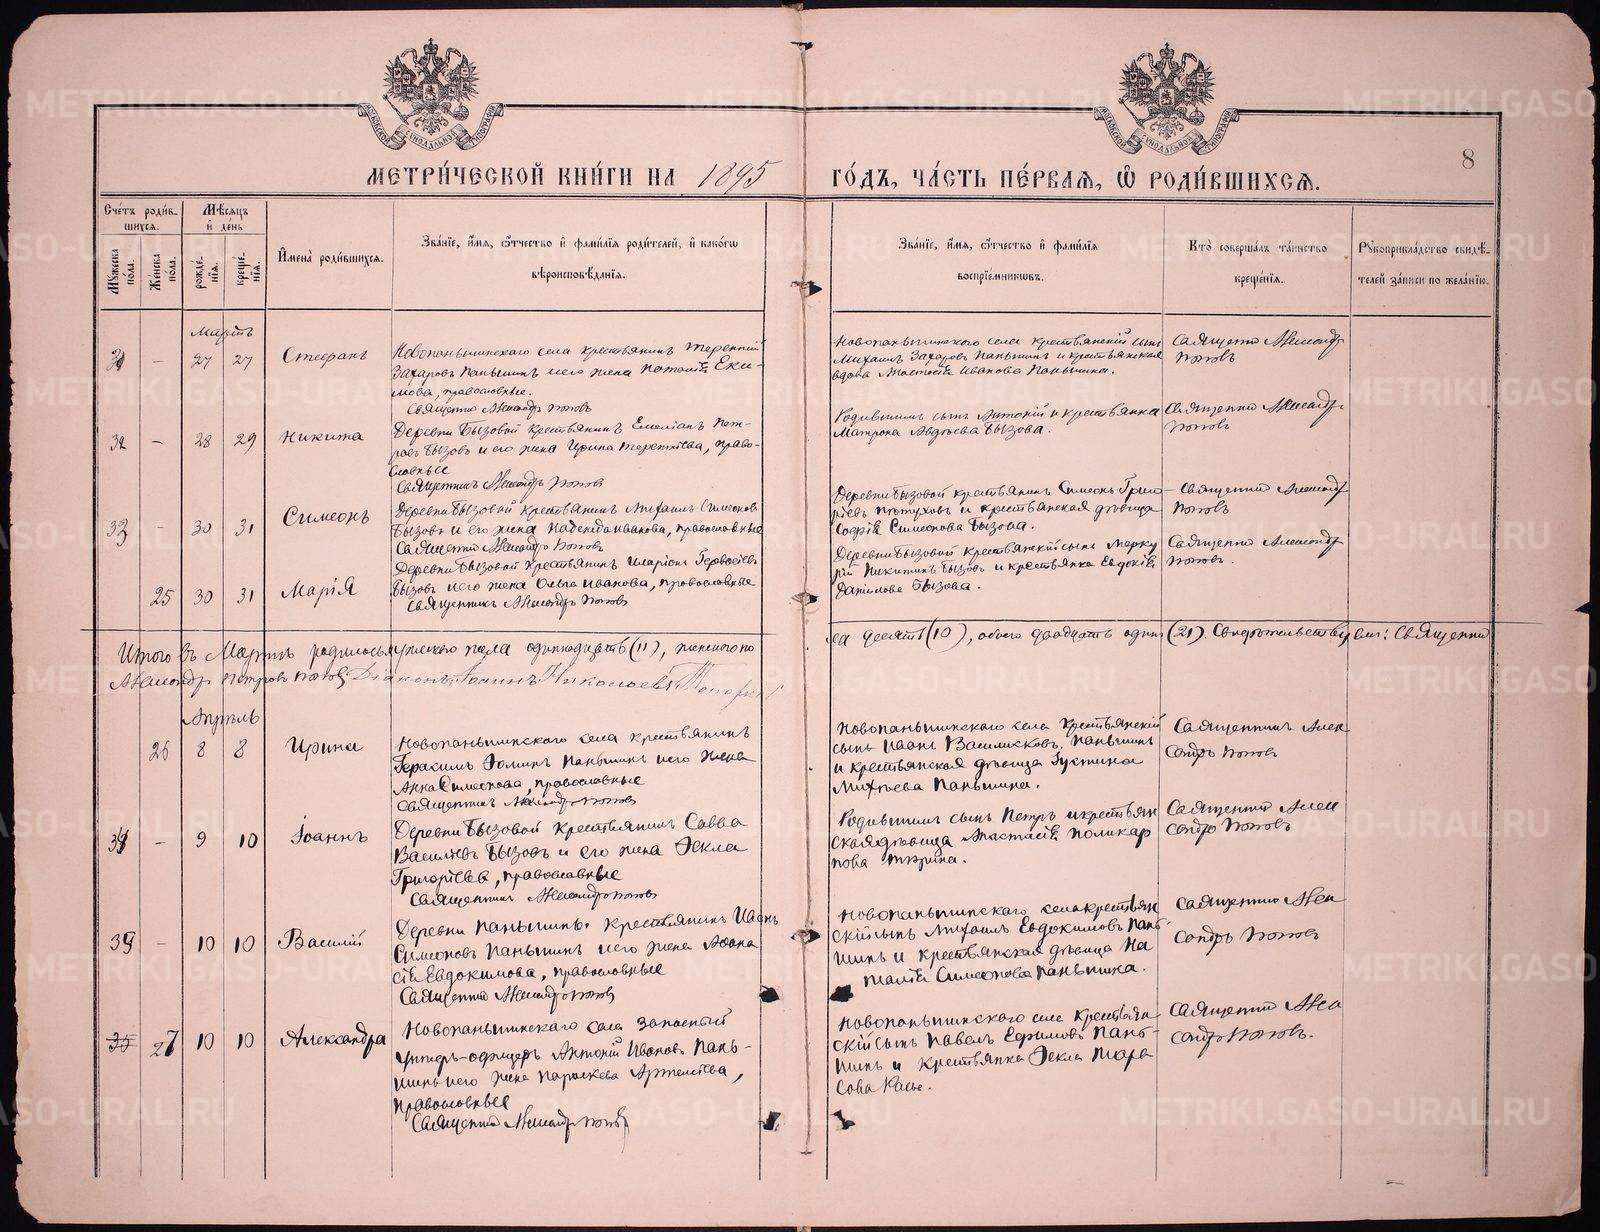 МЕТРИ́ЧЕСКОЙ КНИ́ГИ НА 1895
ГО́ДЪ, ЧА́СТЬ ПЕ́РВАЯ, Ѽ РОДИ́ВШИХСЯ.
8
Сче́тъ роди́в-
шихся.
Мꙋжеска пола.
Же́нска пола.
Мѣ́сяцъ
и҆ де́нь
рожде́-
нїѧ.
креще́-
нїѧ.
И҆мена̀ роди́вшихся.
Зва́нїе, и҆́мя, ѻ҆́тчество и҆ фами́лїя роди́телей, и҆ како́гѡ
вѣроисповѣ́данїя.
Зва́нїе, и҆́мя, ѻ҆́тчество и҆ фами́лїя
воспрїе́мникѡвъ.
Кто̀ соверша́лъ та́инство
креще́нїя.
Рꙋкоприкла́дство свидѣ́-
телей за́писи по жела́нїю.
Мартъ
31 - 27 27 Стефанъ
Новопаньшинскаго села крестьянинъ Терентий
Захаровъ Паньшинъ и его жена Наталія Еки-
мова, православные.
Священникъ Александръ Поповъ
Новопаньшинскаго села крестьянский сынъ
Михаилъ Захаровъ Паньшинъ и крестьянская
вдова Анастасія Иванова Паньшина.
Священникъ Александръ
Поповъ
32 - 28 29 Никита
Деревни Бызовой крестьянинъ Емеліанъ Пет-
ровъ Бызовъ и его жена Ирина Терентіева, право-
славные
Священникъ Александръ Поповъ
Родившихъ сынъ Антоній и крестьянка
Матрона Авдѣева Бызова.
Священникъ Александръ
Поповъ
33 - 30 31 Симеонъ
Деревни Бызовой крестьянинъ Михаилъ Симеоновъ
Бызовъ и его жена Надежда Иванова, православные
Священникъ Александръ Поповъ
Деревни Бызовой крестьянинъ Симеонъ Григо-
ріевъ Пѣтуховъ и крестьянская дѣвица
Софія Симеонова Бызова.
Священникъ Александръ
Поповъ
25 30 31 Марія
Деревни Бызовой крестьянинъ Иларіонъ Гервасіевъ
Бызовъ и его жена Ольга Иванова, православные
Священникъ Александръ Поповъ
Деревни Бызовой крестьянский сынъ Мерку-
рій Никитинъ Бызовъ и крестьянка Евдокія
Данилова Бызова.
Священникъ Александръ
Поповъ.
Итого въ Мартѣ родилось мужескаго пола одиннадцать (11), женскаго по
ла десять (10), обоего двадцать одинъ (21). Свидѣтельствуемъ: Священникъ
Александръ Петровъ Поповъ Діаконъ Іоаннъ Николаевъ
Апрѣль
26 8 8 Ирина
Новопаньшинскаго села крестьянинъ
Герасимъ Фоминъ Паньшинъ и его жена
Анна Симеонова, православные
Священникъ Александръ Поповъ
Новопаньшинскаго села крестьянский
сынъ Иванъ Василисковъ Паньшинъ
и крестьянская дѣвица Іустина
Михѣева Паньшина.
Священникъ Алек
сандръ Поповъ
34 - 9 10 Іоаннъ
Деревни Бызовой крестьянинъ Савва
Василіевъ Бызовъ и его жена Фекла
Григоріева, православные
Священникъ Александръ Поповъ
Родившихъ сынъ Петръ и крестьян
ская дѣвица Анастасія Поликар
пова
Священникъ Алек
сандръ Поповъ
35 - 10 10 Василій
Деревни Паньшиной крестьянинъ Иванъ
Симеоновъ Паньшинъ и его жена Афана
сія Евдокимова, православные
Священникъ Александръ Поповъ
Новопаньшинскаго села крестьян
ский сынъ Михаилъ Евдокимовъ Пань-
шинъ и крестьянская дѣвица На
талія Симеонова Паньшина.
Священникъ Алек
сандръ Поповъ
35 27 10 10 Александра
Новопаньшинскаго села запасный
унтеръ-офицеръ Антоній Ивановъ Пань-
шинъ и его жена Параскева Артеміева,
православные
Священникъ Александръ Поповъ
Новопаньшинскаго села крестьян
скій сынъ Павелъ Ефимовъ Пань-
шинъ и крестьянка Фекла Тара
сова
Священникъ Алек
сандръ Поповъ.
METRIKI.GASO-URAL.RU